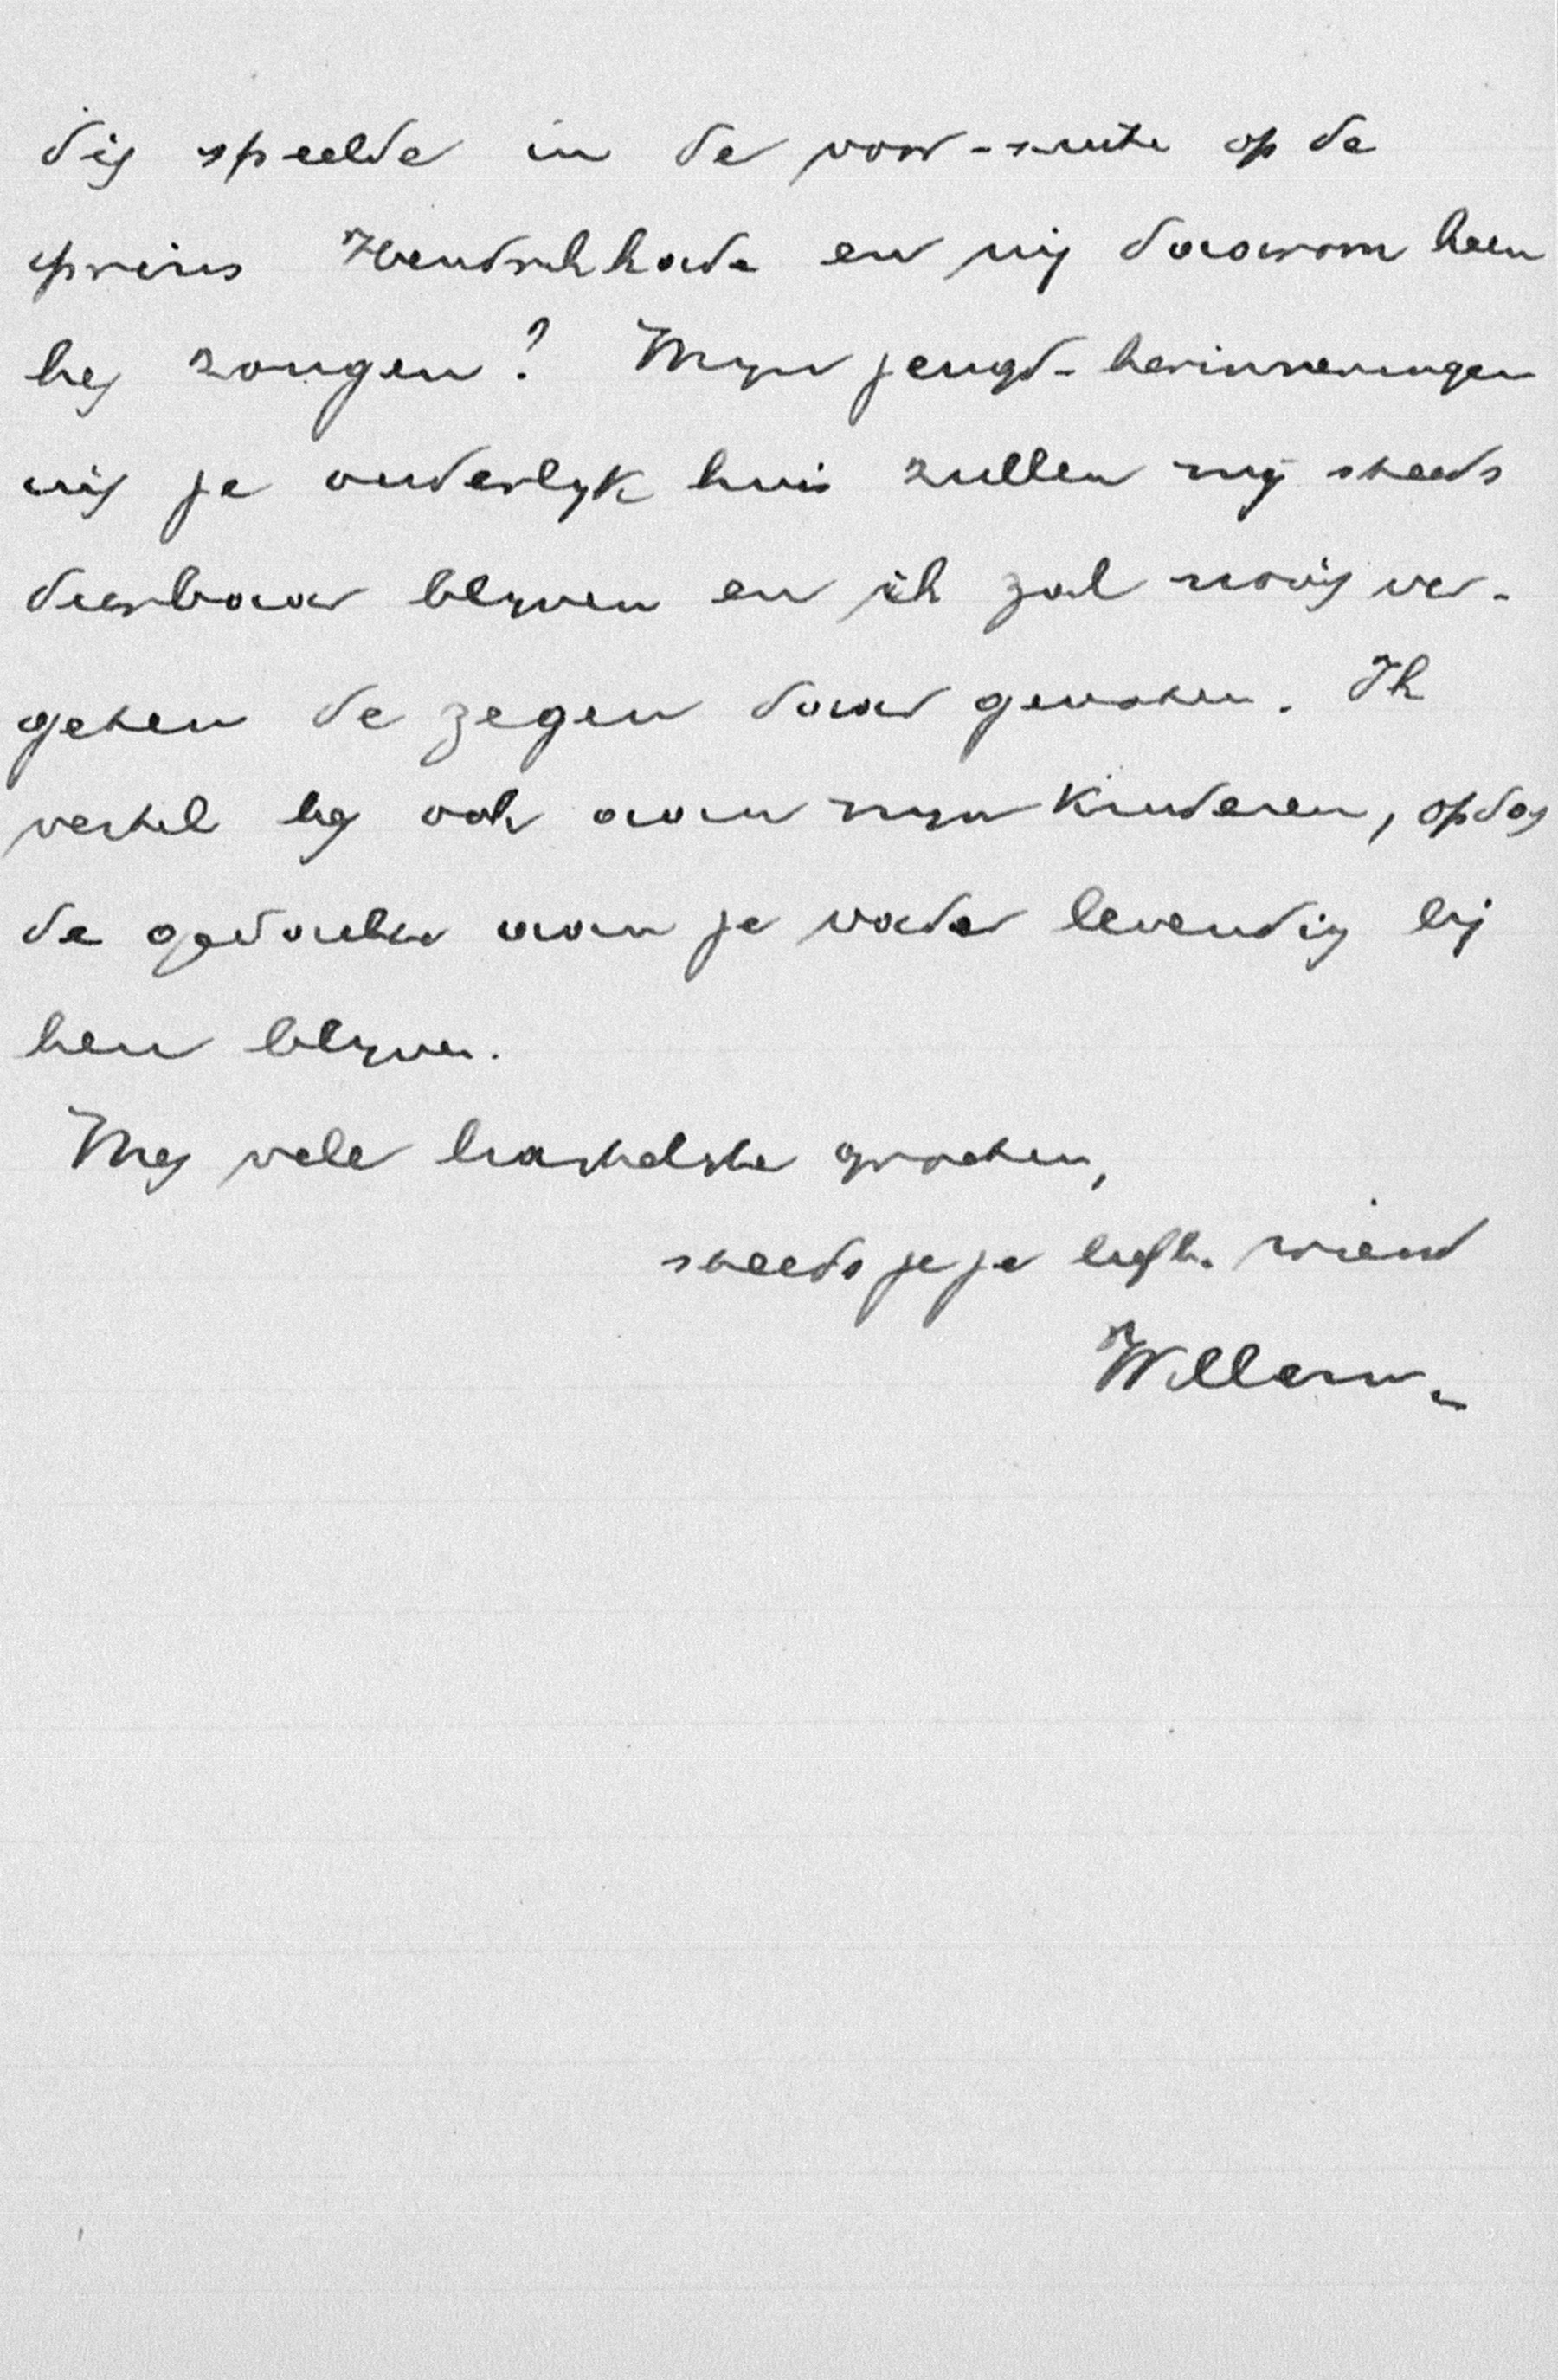 dit speelde in de voor-suite op de
prins Hendrikkade en wij daarom heen
het zongen? Mijn jeugd-herinneringen
uit je ouderlijk huis zullen mij steeds
dierbaar blijven en ik zal nooit ver-
geten de zegen daar genoten. Ik
vertel het ook aan mijn kinderen, opdat
de gedachte aan je vader levendig bij
hen blijve.
Met vele hartelijke groeten,
steeds je je liefh. vriend
Willem.